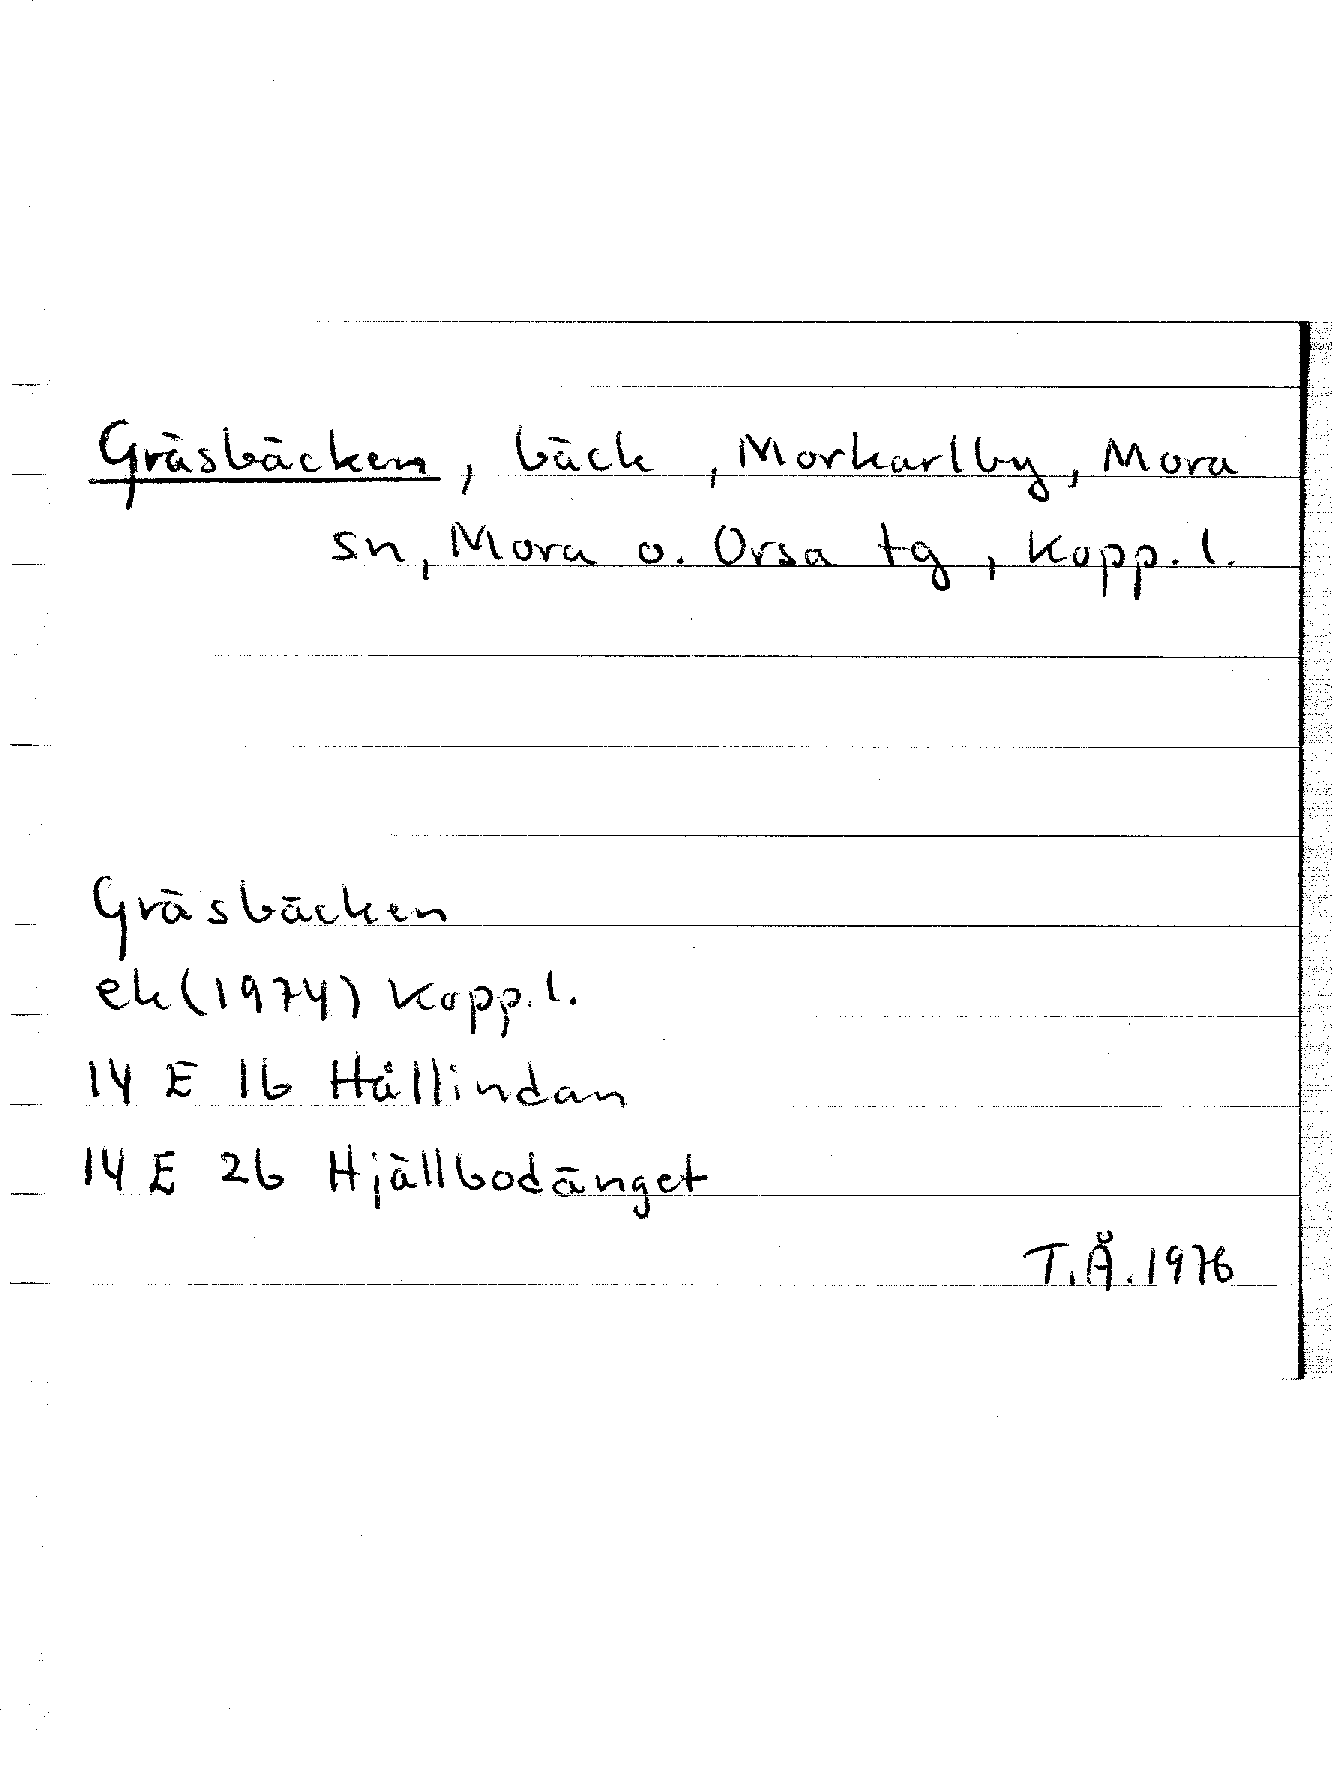 Gräsbäcken, bäck, Morkarlby, Mora
sn, Mora o. Orsa tg, Kopp. l.
Gräsbäcken
ek (1974) Kopp. l.
14 E 1b Hållindan
14 E 2b Hjällbodänget
T.Å. 1976